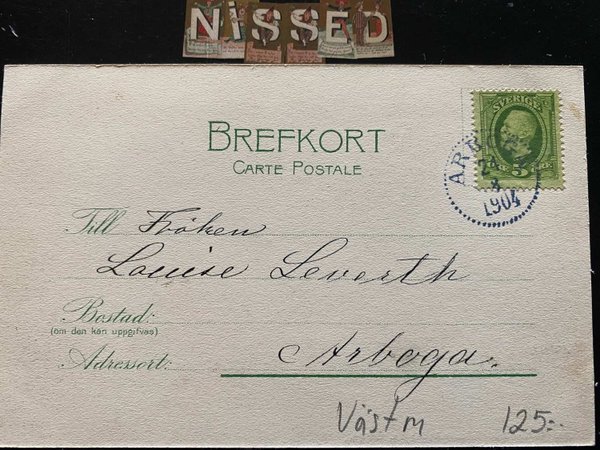 NiSSED
BREFKORT
CARTE POSTALE
SVERIGE
5
1904
Till Fröken
Louise Leverth
Bostad:
(om den kan uppgifvas)
Adressort:
Arboga.
Västm 125:-